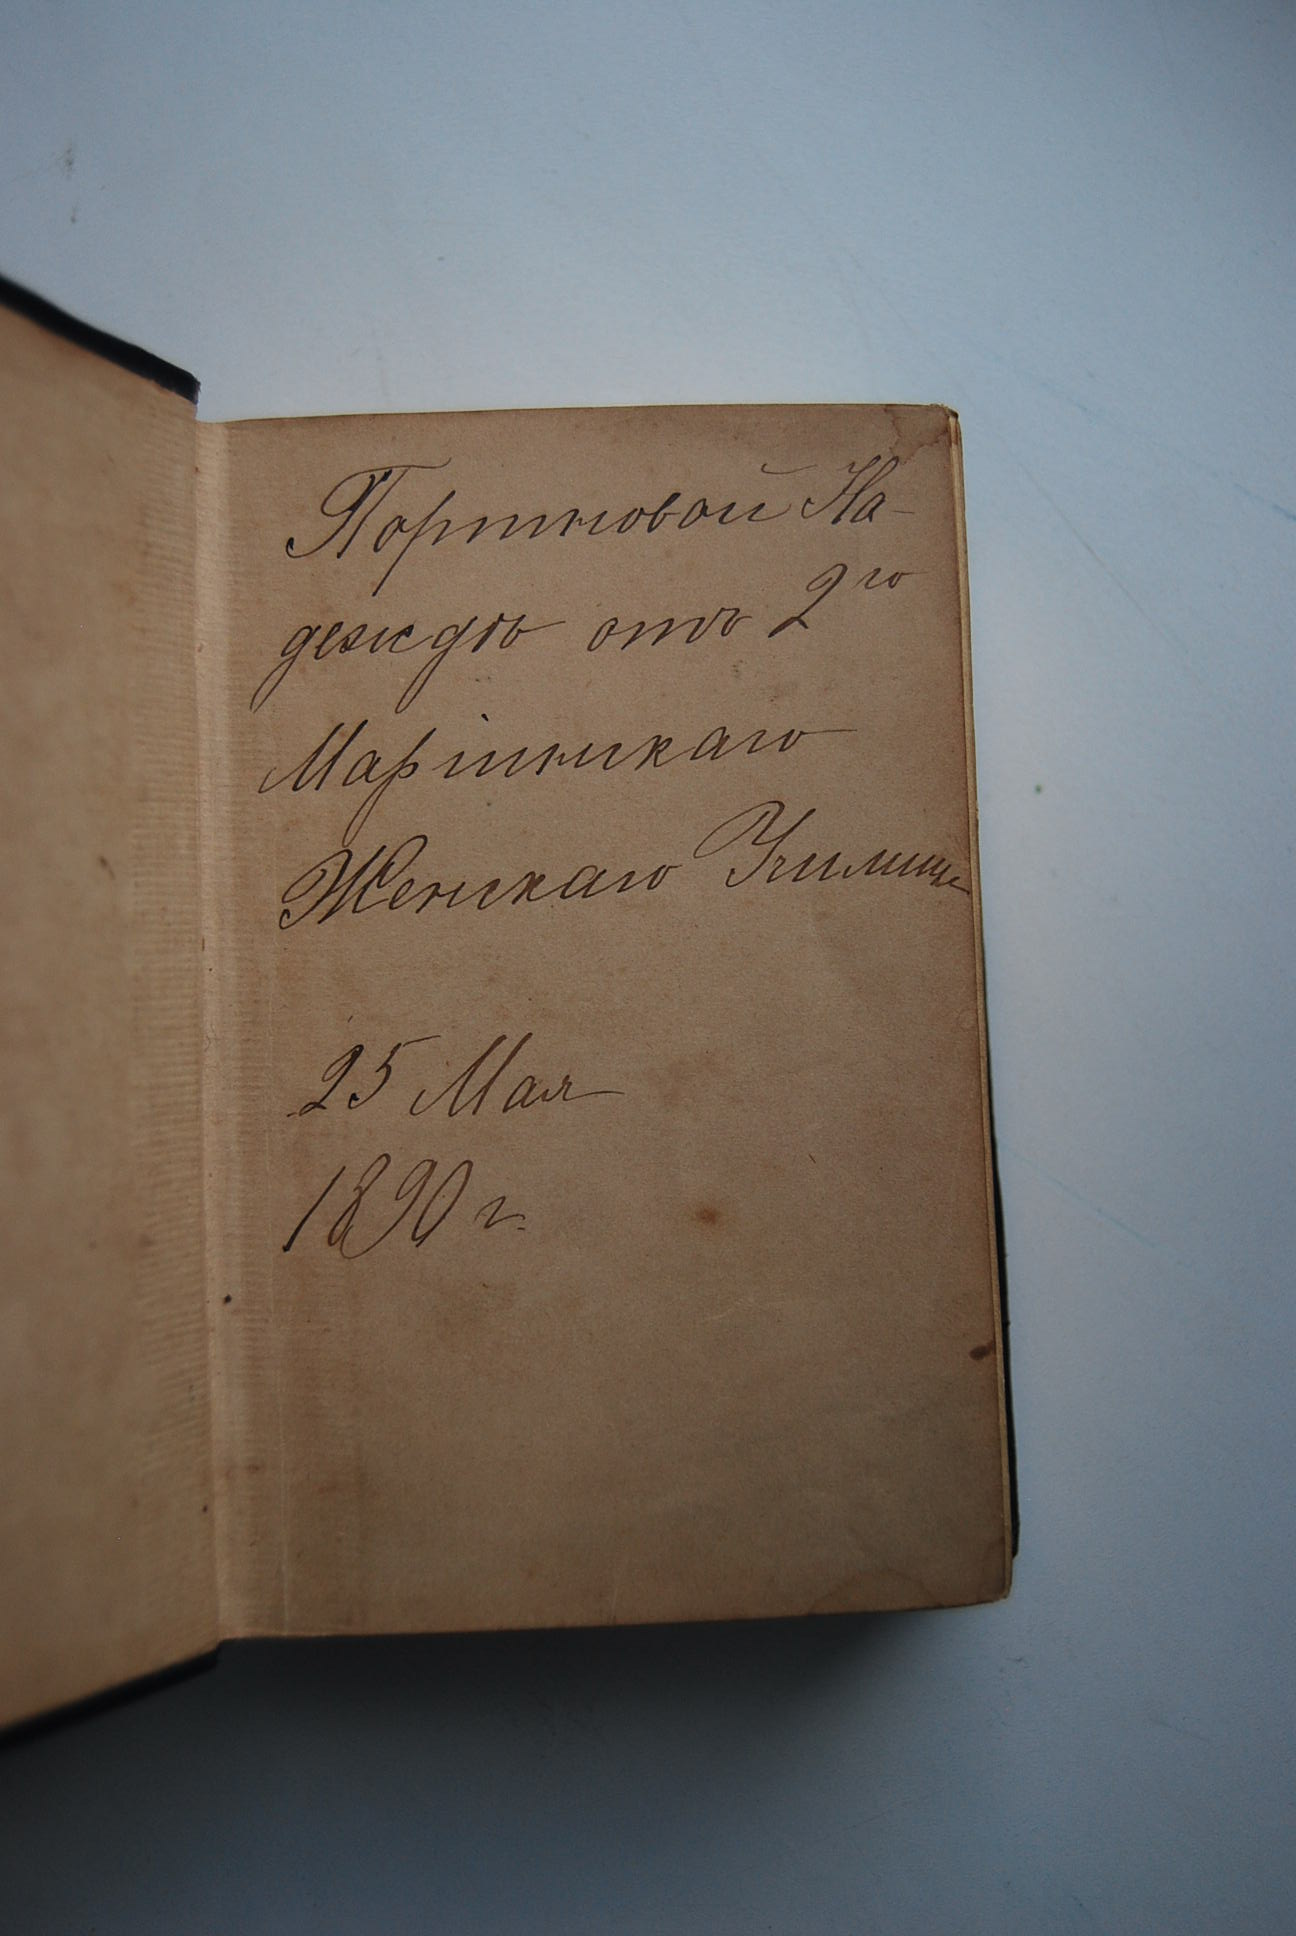 Портновой На-
деждѣ отъ 2го
Маріинскаго
Женскаго Училищ
25 Мая
1890 г.